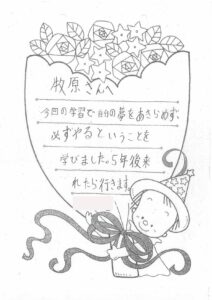 牧原さんへ
今回の学習で自分の夢をあきらめず、
必ずやるということを
学びました。5年後来
れたら行きます。